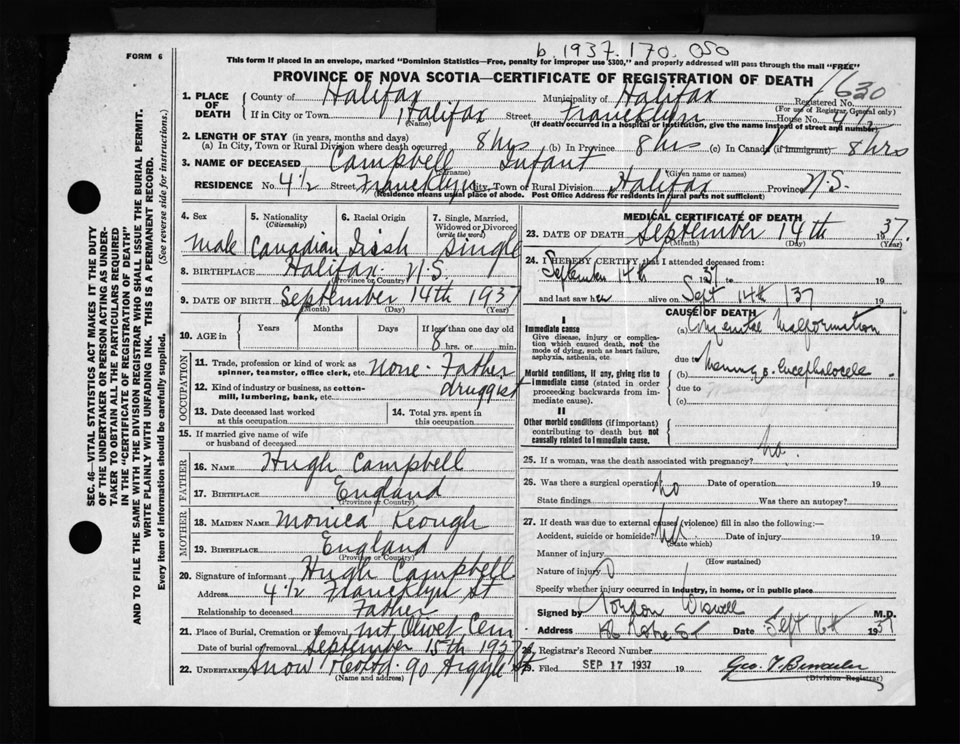 b. 1937. 170. 050
FORM 6
This form if placed in an envelope, marked "Dominion Statistics—Free, penalty for improper use $300," and properly addressed will pass through the mail "FREE"
PROVINCE OF NOVA SCOTIA—CERTIFICATE OF REGISTRATION OF DEATH
1630
1. PLACE OF DEATH
County of Halifax Municipality of Halifax Registered No.
(For use of Registrar General only)
If in City or Town Halifax Street Francklyn House No. 4 1/2
(Name) (If death occurred in a hospital or institution, give the name instead of street and number)
2. LENGTH OF STAY (in years, months and days)
(a) In City, Town or Rural Division where death occurred 8 hrs (b) In Province 8 hrs (c) In Canada (if immigrant) 8 hrs
3. NAME OF DECEASED Campbell Infant
(Surname) (Given name or names)
RESIDENCE No. 4 1/2 Street Francklyn City, Town or Rural Division Halifax Province N.S.
(Residence means usual place of abode. Post Office Address for residents in rural parts not sufficient)
4. Sex
Male
5. Nationality (Citizenship)
Canadian
6. Racial Origin
Irish
7. Single, Married, Widowed or Divorced (write the word)
Single
8. BIRTHPLACE Halifax. N.S.
(Province or Country)
9. DATE OF BIRTH September 14th 1937
(Month) (Day) (Year)
10. AGE in Years Months Days If less than one day old
8 hrs. or min.
OCCUPATION
11. Trade, profession or kind of work as spinner, teamster, office clerk, etc. None. Father
12. Kind of industry or business, as cotton-mill, lumbering, bank, etc. druggist
13. Date deceased last worked at this occupation
14. Total yrs. spent in this occupation
15. If married give name of wife or husband of deceased
FATHER
16. NAME Hugh Campbell
17. BIRTHPLACE England
(Province or Country)
MOTHER
18. MAIDEN NAME Monica Keough
19. BIRTHPLACE England
(Province or Country)
20. Signature of informant Hugh Campbell
Address 4 1/2 Francklyn St
Relationship to deceased Father
21. Place of Burial, Cremation or Removal Mt. Olivet Cem
Date of burial or removal September 15th 1937
22. UNDERTAKER Snow & Co Ltd. 90 Argyle St
(Name and address)
MEDICAL CERTIFICATE OF DEATH
23. DATE OF DEATH September 14th 1937.
(Month) (Day)
24. I HEREBY CERTIFY that I attended deceased from:
September 14th 1937 to 19
and last saw h alive on Sept 14th 37 19
CAUSE OF DEATH
I
Immediate cause
Give disease, injury or complication which caused death, not the mode of dying, such as heart failure, asphyxia, asthenia, etc.
(a) Congenital Malformation
due to
Morbid conditions, if any, giving rise to immediate cause (stated in order proceeding backwards from immediate cause).
(b) Meningo-Encephalocele
due to
(c)
II
Other morbid conditions (if important) contributing to death but not causally related to immediate cause.
25. If a woman, was the death associated with pregnancy? no.
26. Was there a surgical operation? no Date of operation 19
State findings Was there an autopsy?
27. If death was due to external causes (violence) fill in also the following:—
Accident, suicide or homicide? Date of injury 19
(State which)
Manner of injury
(How sustained)
Nature of injury
Specify whether injury occurred in industry, in home, or in public place
Signed by Wiswell M.D.
Address St Date Sept 16th 1937
28. Registrar's Record Number
29. Filed SEP 17 1937 19
(Division Registrar)
SEC. 46—VITAL STATISTICS ACT MAKES IT THE DUTY
OF THE UNDERTAKER OR PERSON ACTING AS UNDER-
TAKER TO OBTAIN ALL THE PARTICULARS REQUIRED
IN THE "CERTIFICATE OF REGISTRATION OF DEATH"
AND TO FILE THE SAME WITH THE DIVISION REGISTRAR WHO SHALL ISSUE THE BURIAL PERMIT.
WRITE PLAINLY WITH UNFADING INK. THIS IS A PERMANENT RECORD.
Every item of information should be carefully supplied. (See reverse side for instructions.)